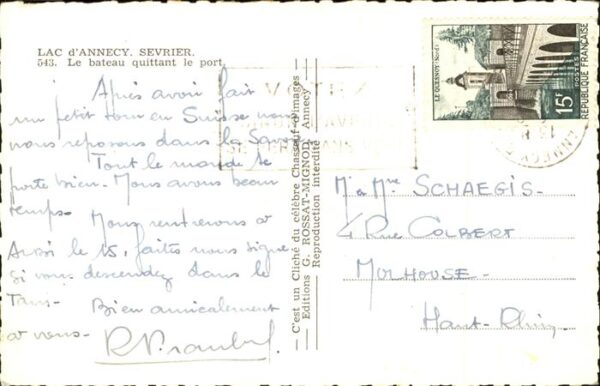 LAC d'ANNECY. SEVRIER.
543. Le bateau quittant le port.
Après avoir fait
un petit tour en Suisse nous
nous reposons dans la Savoie
Tout le monde se
porte bien. Nous avons beau
temps. Nous rentrerons à
le 15, faites nous signe
si vous descendez dans le
Tarn. Bien amicalement
à vous.
— C'est un Cliché du célèbre Chasseur d'images —
— Editions G. ROSSAT-MIGNOD, Annecy —
Reproduction interdite
LE QUESNOY (Nord)
15F
POSTES
REPUBLIQUE FRANÇAISE
ANNECY
Mr & Mme SCHAEGIS.
4 Rue COLBERT
MULHOUSE.
Haut-Rhin